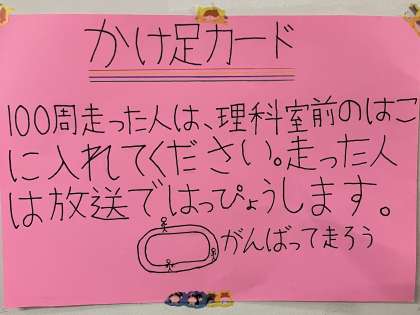 かけ足カード
100周走った人は、理科室前のはこ
に入れてください。走った人
は放送ではっぴょうします。
がんばって走ろう